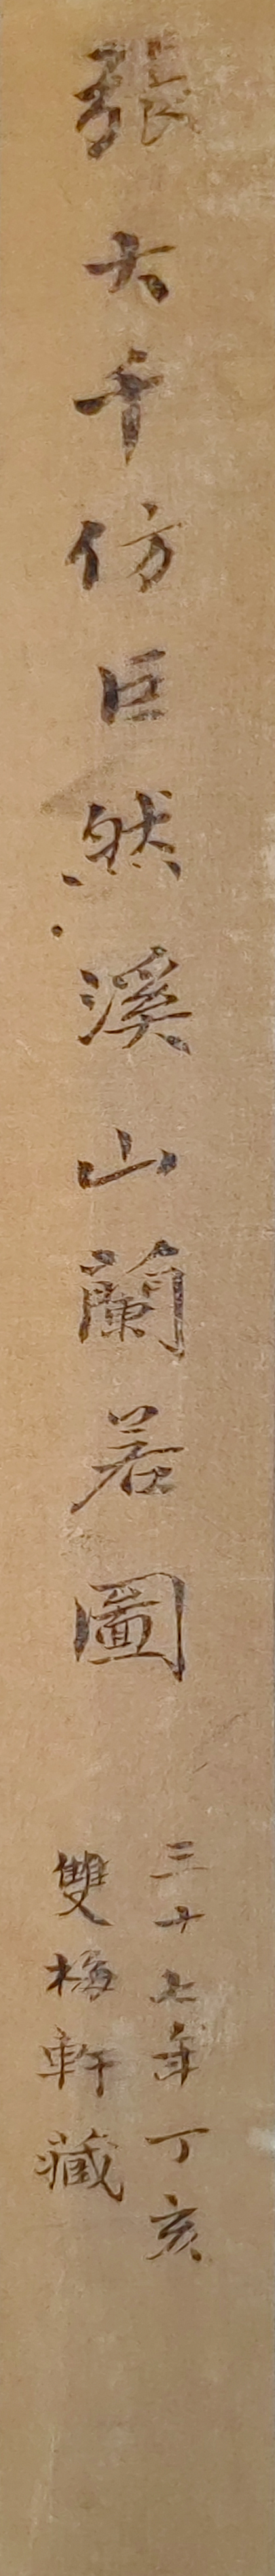 張大千仿巨然溪山蘭若圖
三十七年丁亥
雙梅軒藏